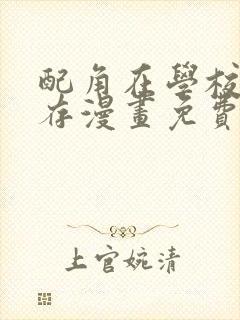 配角在學校
存漫畫免費
上官婉清